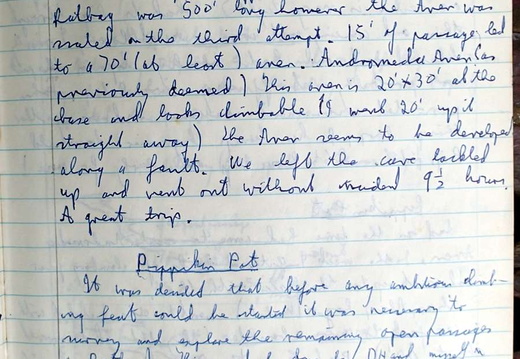 Ratbag was 500' long however the Aven was
scaled on the third attempt. 15' of passage led
to a 70' (at least) aven. Andromeda Aven (as
previously deemed) This aven is 20' x 30' at the
base and looks climbable (I went 20' up it
straight away) The Aven seems to be developed
along a fault. We left the cave tackled
up and went out without incident 9½ hours.
A great trip.
Pippikin Pot
It was decided that before any ambitious climb-
ing feat could be started it was necessary to
survey and explore the remaining open passages
DH and myself